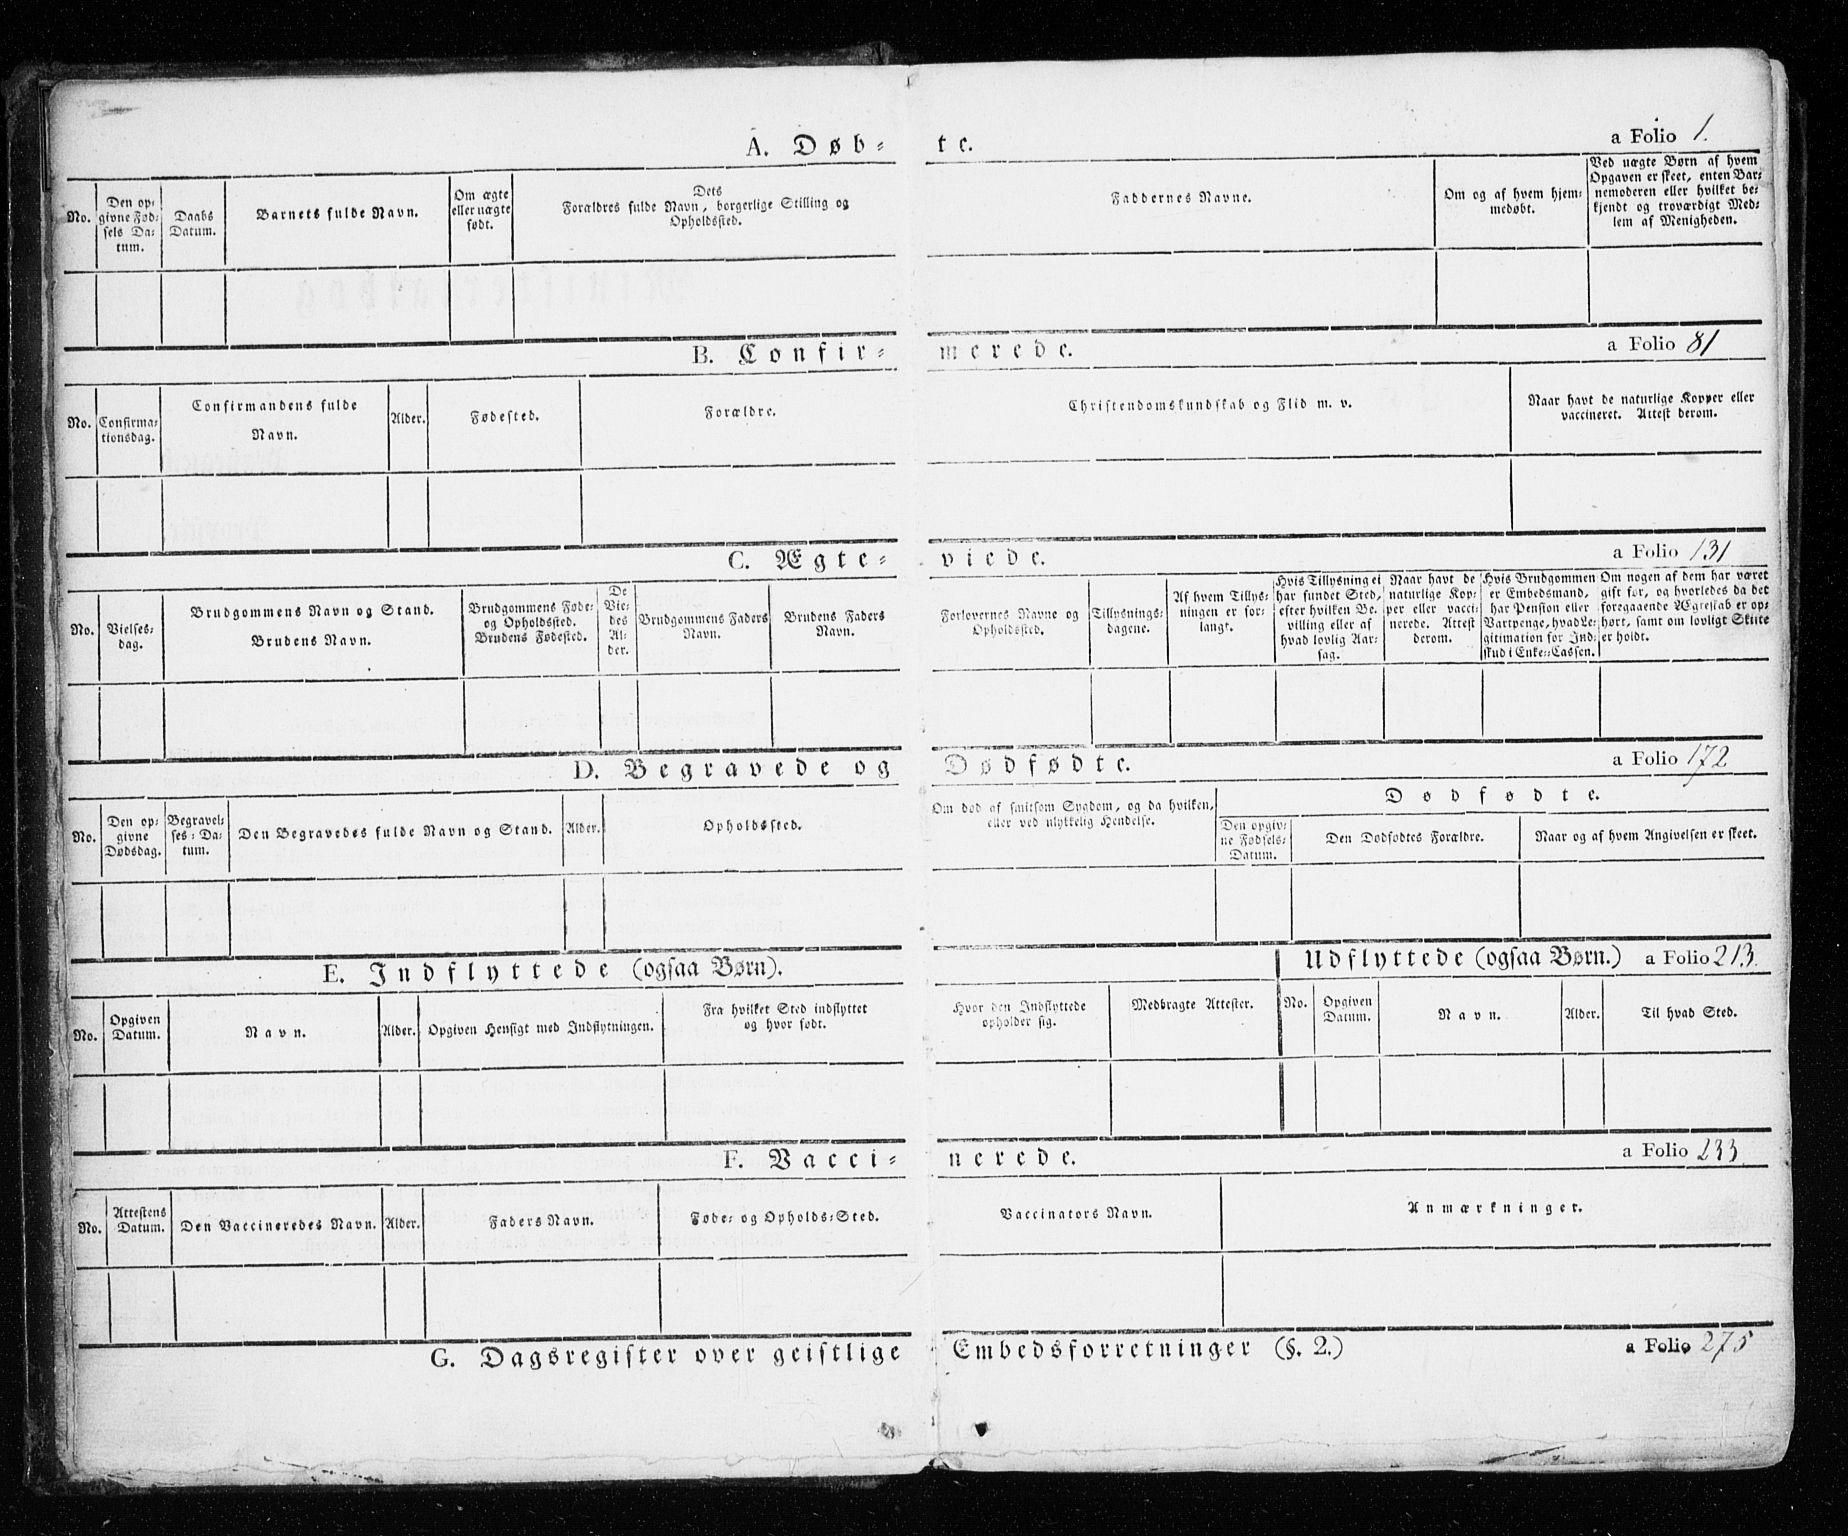 A. Døbte. a Folio 1.
No.
Den op-
givne Fød-
sels Da-
tum.
Daabs
Datum.
Barnets fulde Navn.
Om ægte
eller uægte
født.
Dets
Forældres fulde Navn, borgerlige Stilling og
Opholdssted.
Faddernes Navne.
Om og af hvem hjem-
medøbt.
Ved uægte Børn af hvem
Opgaven er skeet, enten Bar-
nemoderen eller hvilket be-
kjendt og troværdigt Med-
lem af Menigheden.
B. Confirmerede. a Folio 81
No.
Confirma-
tionsdag.
Confirmandens fulde
Navn.
Alder.
Fødested.
Forældre.
Christendomskundskab og Flid m. v.
Naar havt de naturlige Kopper eller
vaccineret. Attest derom.
C. Ægteviede. a Folio 131
No.
Vielses-
dag.
Brudgommens Navn og Stand.
Brudens Navn.
Brudgommens Føde-
og Opholdssted.
Brudens Fødested.
De
Vie-
des
Al-
der.
Brudgommens Faders
Navn.
Brudens Faders
Navn.
Forlovernes Navne og
Opholdssted.
Tillysnings-
dagene.
Af hvem Tillys-
ningen er for-
langt.
Hvis Tillysning ei
har fundet Sted,
efter hvilken Be-
villing eller af
hvad lovlig Aar-
sag.
Naar havt de
naturlige Kop-
per eller vacci-
nerede. Attest
derom.
Hvis Brudgommen
er Embedsmand,
har Pension eller
Vartpenge, hvad Le-
gitimation for Ind-
skud i Enke-Cassen.
Om nogen af dem har været
gift før, og hvorledes da det
foregaaende Ægteskab er op-
hørt, samt om lovligt Skifte
er holdt.
D. Begravede og Dødfødte. a Folio 172
No.
Den op-
givne
Dødsdag.
Begravel-
ses-Da-
tum.
Den Begravedes fulde Navn og Stand.
Alder.
Opholdssted.
Om død af smitsom Sygdom, og da hvilken,
eller ved ulykkelig Hendelse.
Dødfødte.
Den opgiv-
ne Fødsels-
Datum.
Den Dødfødtes Forældre.
Naar og af hvem Angivelsen er skeet.
E. Indflyttede (ogsaa Børn). Udflyttede (ogsaa Børn.) a Folio 213.
No.
Opgiven
Datum.
Navn.
Alder.
Opgiven Hensigt med Indflytningen.
Fra hvilket Sted indflyttet
og hvor født.
Hvor den Indflyttede
opholder sig.
Medbragte Attester.
No.
Opgiven
Datum.
Navn.
Alder.
Til hvad Sted.
F. Vaccinerede. a Folio 233
No.
Attestens
Datum.
Den Vaccineredes Navn.
Alder.
Faders Navn.
Føde- og Opholds-Sted.
Vaccinators Navn.
Anmærkninger.
G. Dagsregister over geistlige Embedsforretninger (§. 2.) a Folio 275